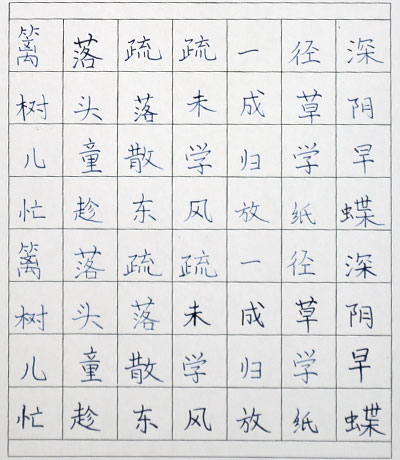 篱落疏疏一径深
树头落未成草阴
儿童散学归学早
忙趁东风放纸蝶
篱落疏疏一径深
树头落未成草阴
儿童散学归学早
忙趁东风放纸蝶